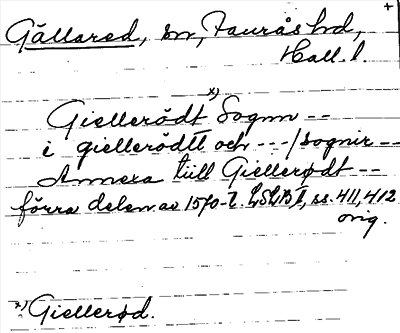 +
Gällared, sn, Faurås hd,
Hall. l.
x)
Giellerödt Sognn --
i giellerödtt och ---/sognir --
Annexa tiill Giellerødt --
förra delen av 1570-t. LSLB II, ss. 411, 412
orig.
x) Giellerød.